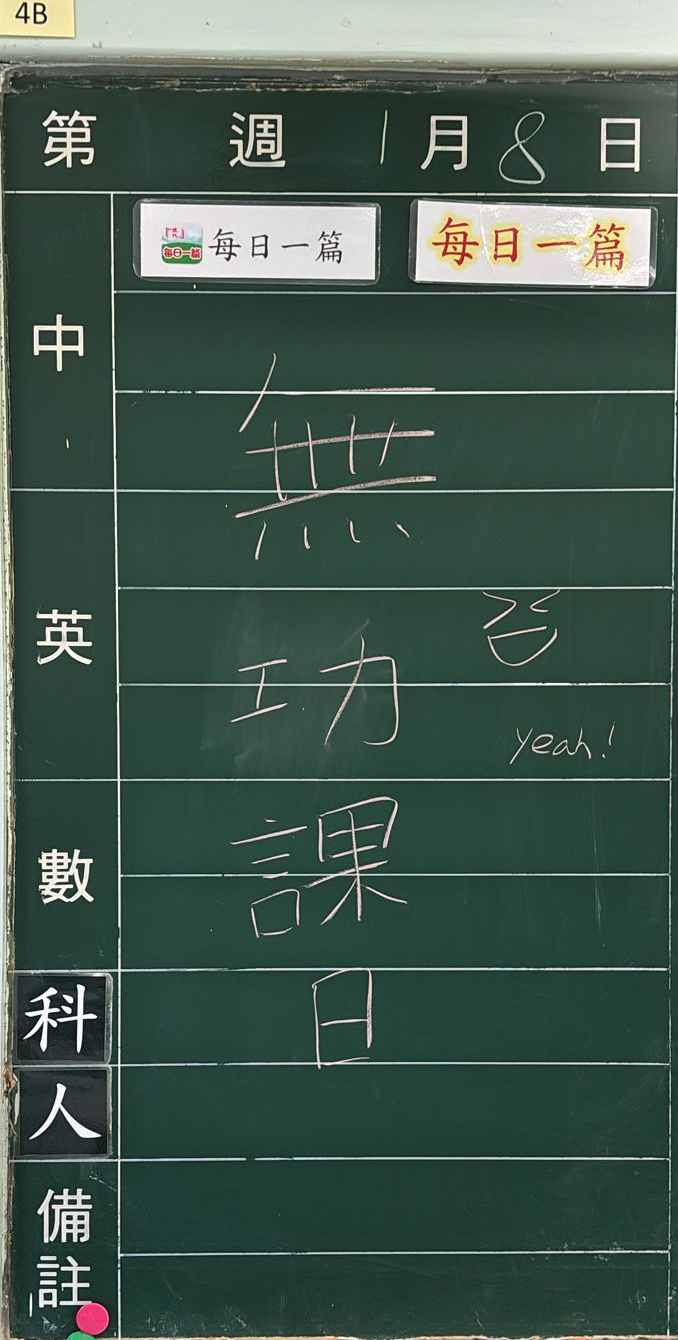 4B
第 週 1 月 8 日
每日一篇 每日一篇 每日一篇
中
無
英
功
yeah!
數
課
科
日
人
備註